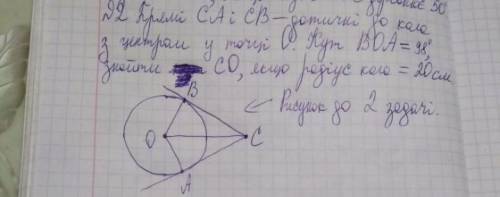 №2 Прямі CA і CB – дотичні до кола
з центром у точці O. Кут BOA = 98°,
знайти CO, якщо радіус кола = 20см
B
Рисунок до 2 задачі.
O
C
A